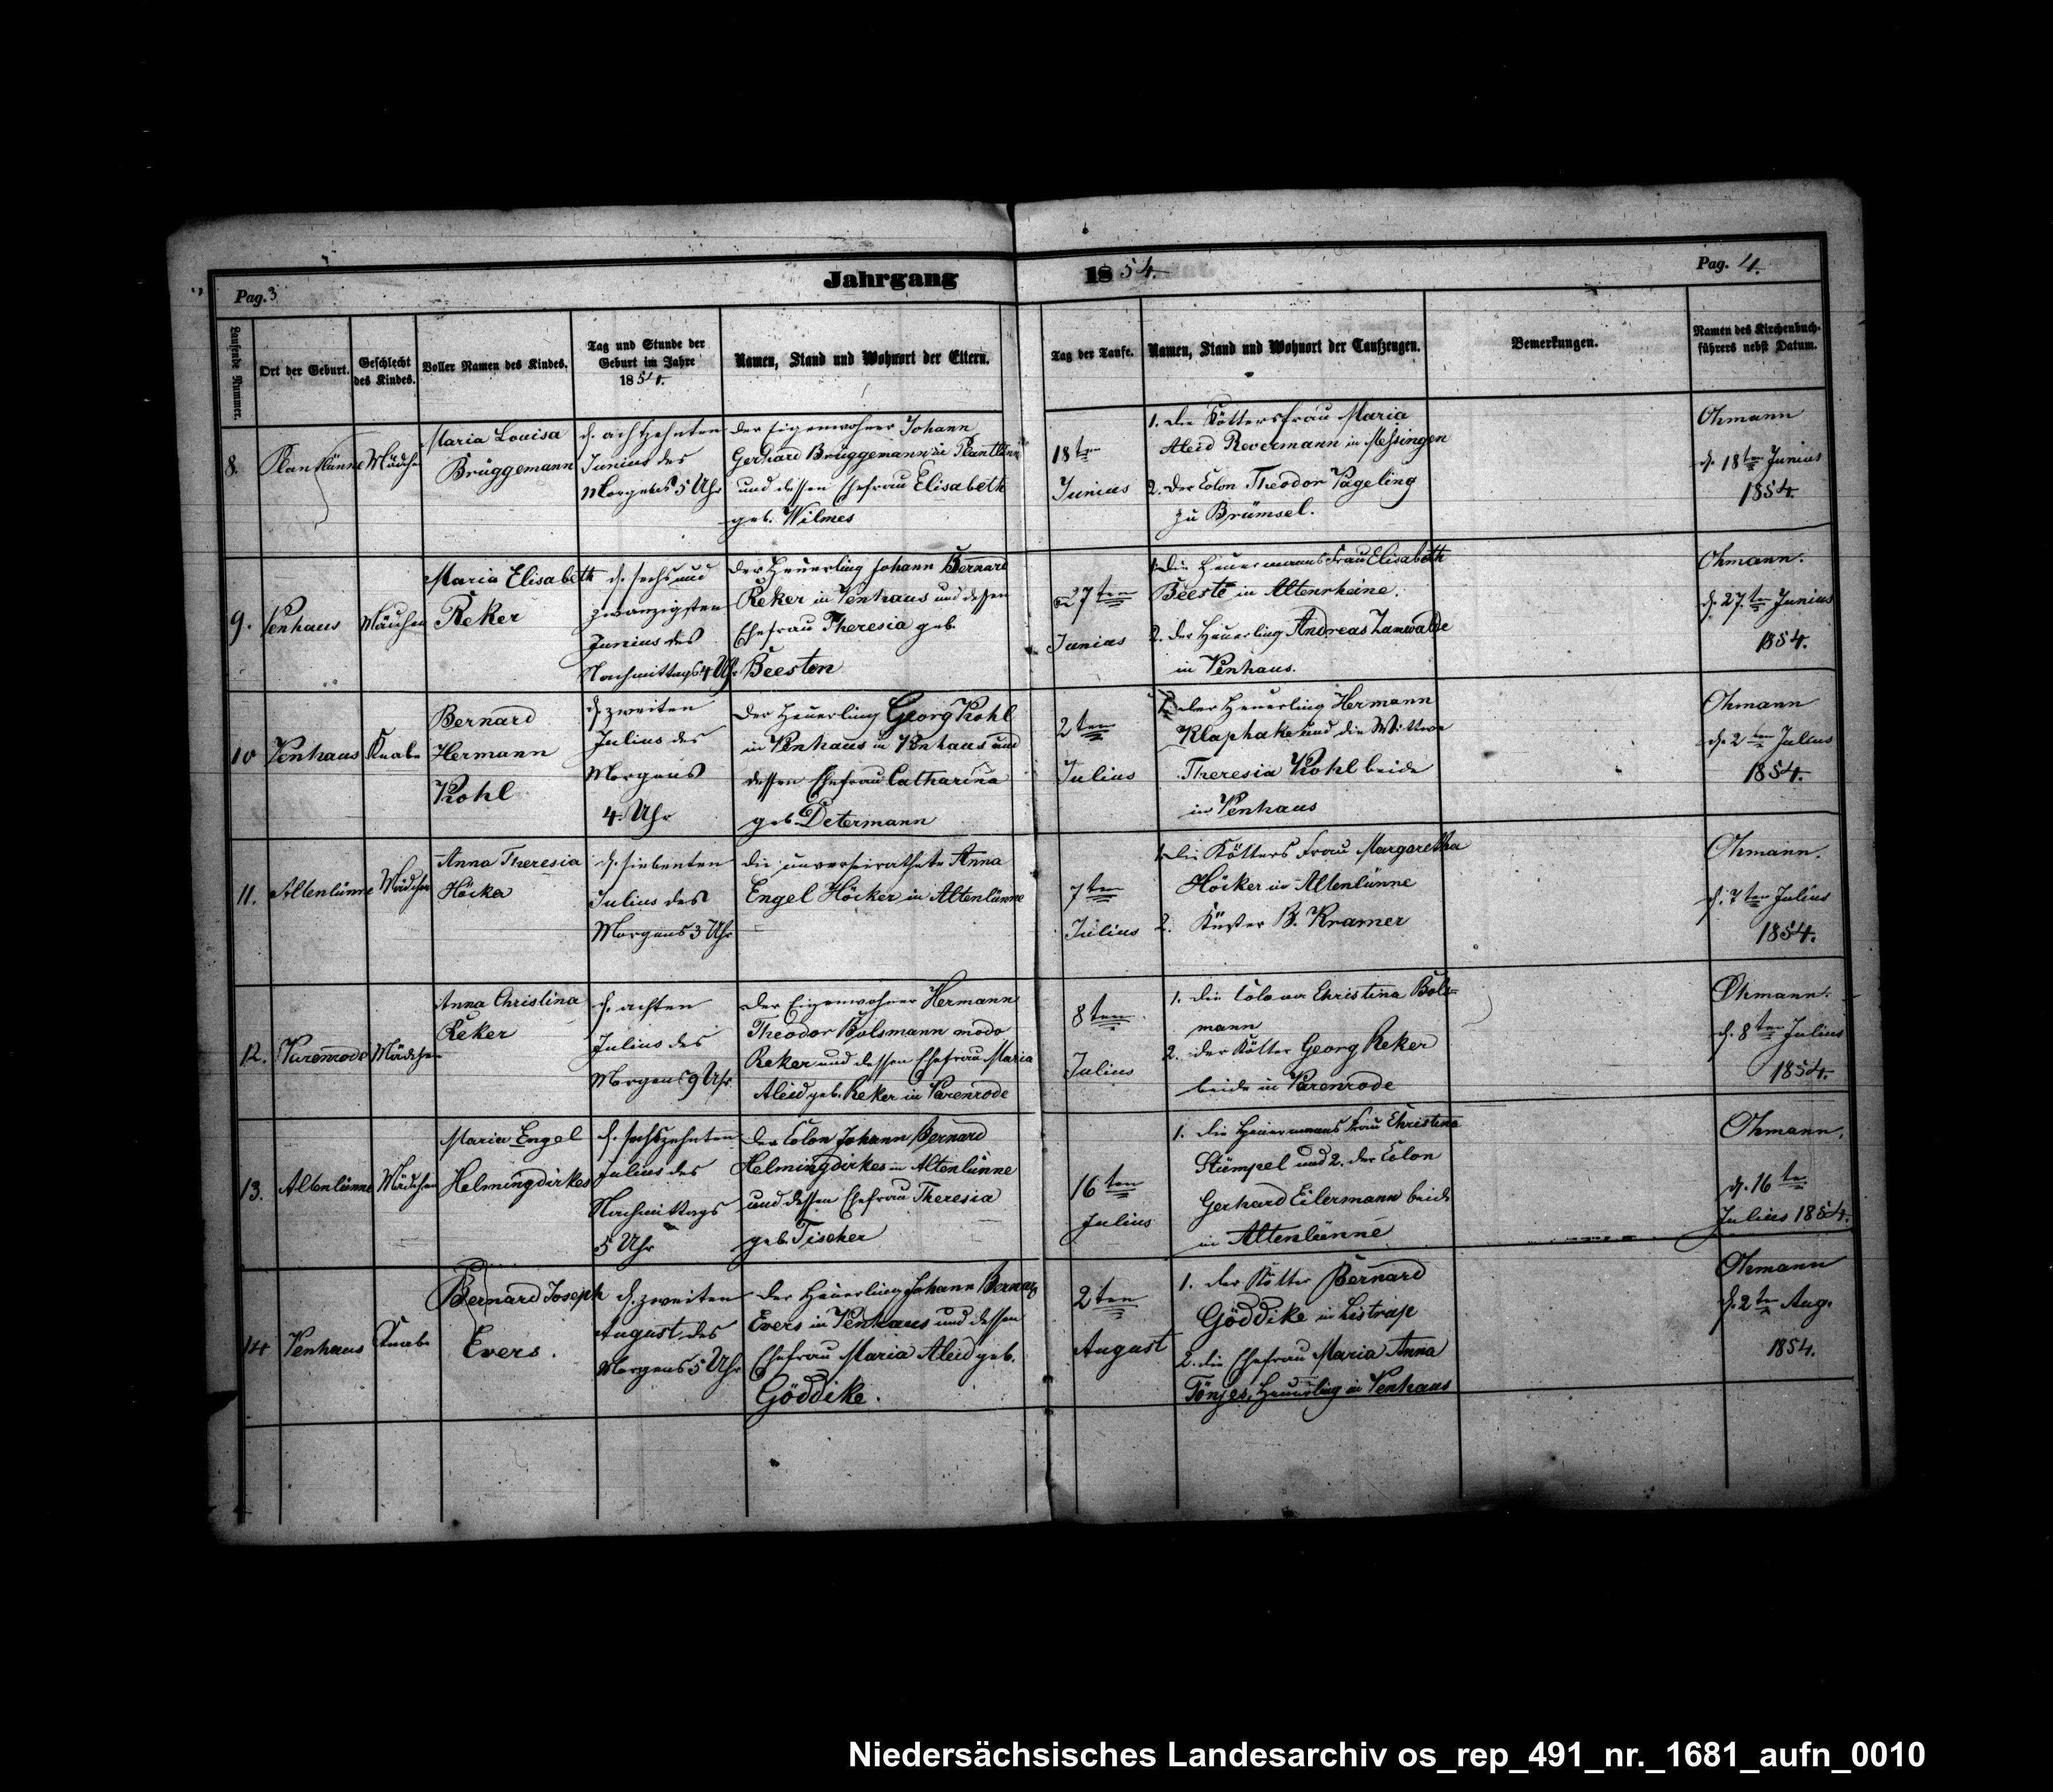 Pag. 3
Jahrgang
1854.
Pag. 4.
Laufende Nummer.
Ort der Geburt.
Geschlecht
des Kindes.
Voller Namen des Kindes.
Tag und Stunde der
Geburt im Jahre
1854.
Namen, Stand und Wohnort der Eltern.
Tag der Taufe.
Namen, Stand und Wohnort der Taufzeugen.
Bemerkungen.
Namen des Kirchenbuch-
führers nebst Datum.
8.
Plantlünne
Mädchen
Maria Louisa
Brüggemann
d. achtzehnten
Junius des
Morgens 5 Uhr
der Eigenwohner Johann
Gerhard Brüggemann in Plantlünne
und dessen Ehefrau Elisabeth
geb. Wilmes
18ten
Junius
1. die Köttersfrau Maria
Aleid Revermann in Messingen
2. der Colon Theodor Pageling
zu Brümsel.
Ohmann
d. 18ten Junius
1854.
9.
Venhaus
Mädchen
Maria Elisabeth
Reker
d. sechs und
zwanzigsten
Junius des
Nachmittags 4 Uhr
der Heuerling Johann Bernard
Reker in Venhaus und dessen
Ehefrau Theresia geb.
Beesten
27ten
Junius
1. die Heuermanns Frau Elisabeth
Beeste in Altenrheine.
2. der Heuerling Andreas
in Venhaus.
Ohmann.
d. 27.ten Junius
1854.
10
Venhaus
Knabe
Bernard
Hermann
Kohl
d. zweiten
Julius des
Morgens
4. Uhr
Der Heuerling Georg Kohl
in Venhaus in Venhaus und
dessen Ehefrau Catharina
geb. Determann
2ten
Julius
1. der Heuerling Hermann
Klaphake und die Wittwe
Theresia Kohl beide
in Venhaus
Ohmann
d. 2ten Julius
1854.
11.
Altenlünne
Mädchen
Anna Theresia
Höcker
d. siebenten
Julius des
Morgens 3 Uhr
die unverheirathete Anna
Engel Höcker in Altenlünne
7ten
Julius
1. die Kötters Frau Margaretha
Höcker in Altenlünne
2. Küster B. Kramer
Ohmann.
d. 7ten Julius
1854.
12.
Varenrode
Mädchen
Anna Christina
Reker
d. achten
Julius des
Morgens 9 Uhr
der Eigenwohner Hermann
Theodor Bolsmann modo
Reker und dessen Ehefrau Maria
Aleid geb. Reker in Varenrode
8ten
Julius
1. die Colona Christina Bols-
mann
2. der Kötter Georg Reker
beide in Varenrode
Ohmann.
d. 8ten Julius
1854.
13.
Altenlünne
Mädchen
Maria Engel
Helmingdirkes
d. sechszehnten
Julius des
Nachmittags
5 Uhr
der Colon Johann Bernard
Helmingdirkes in Altenlünne
und dessen Ehefrau Theresia
geb. Tischer
16ten
Julius
1. die Heuermanns Frau Christina
Stümpel und 2. der Colon
Gerhard Eilermann beide
in Altenlünne
Ohmann.
d. 16ten
Julius 1854.
14
Venhaus
Knabe
Bernard Joseph
Evers.
d. zweiten
August des
Morgens 5 Uhr
der Heuerling Johann Bernard
Evers in Venhaus und dessen
Ehefrau Maria Aleid geb.
Göddike.
2ten
August
1. der Kötter Bernard
Göddike in Listrup
2. die Ehefrau Maria Anna
Tönjes, Heuerling in Venhaus
Ohmann
d. 2ten Aug.
1854.
Niedersächsisches Landesarchiv os_rep_491_nr._1681_aufn_0010